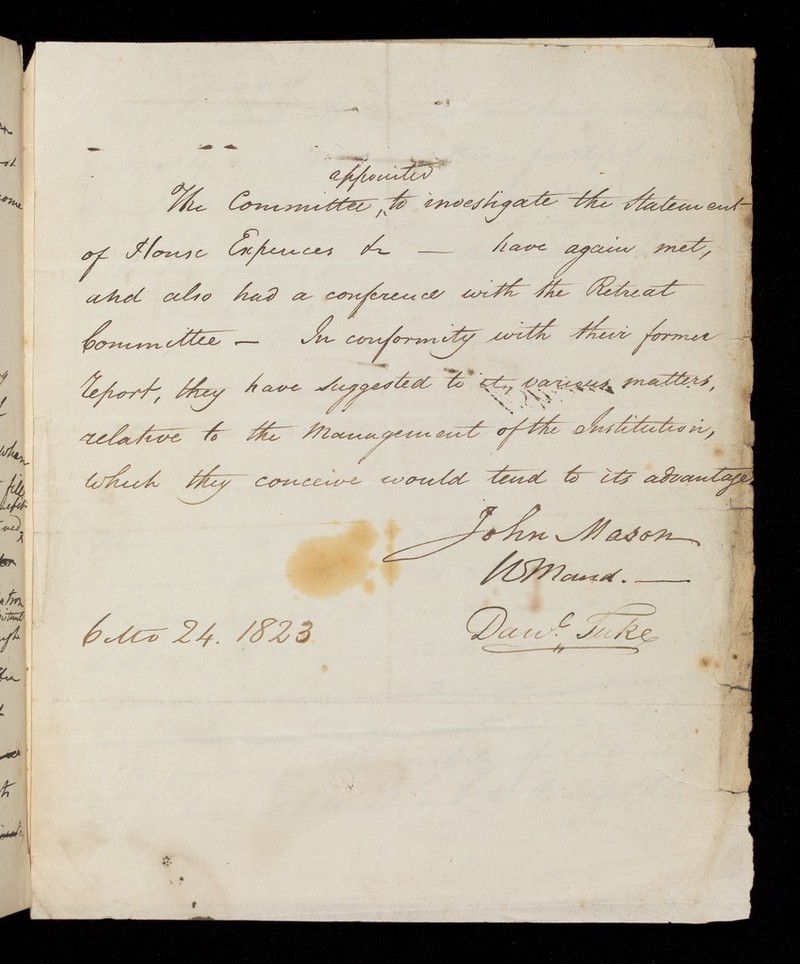 appointed
The Committee, to investigate the Statement
of House Expences &c — have again met,
and also had a conference with the Retreat
Committee — In conformity with their former
Report, they have suggested to it, various matters,
relative to the Management of the Institution,
which they conceive would tend to its advantage
John Mason
W Maud. —
Danl. Tuke
6 Mo 24. 1823